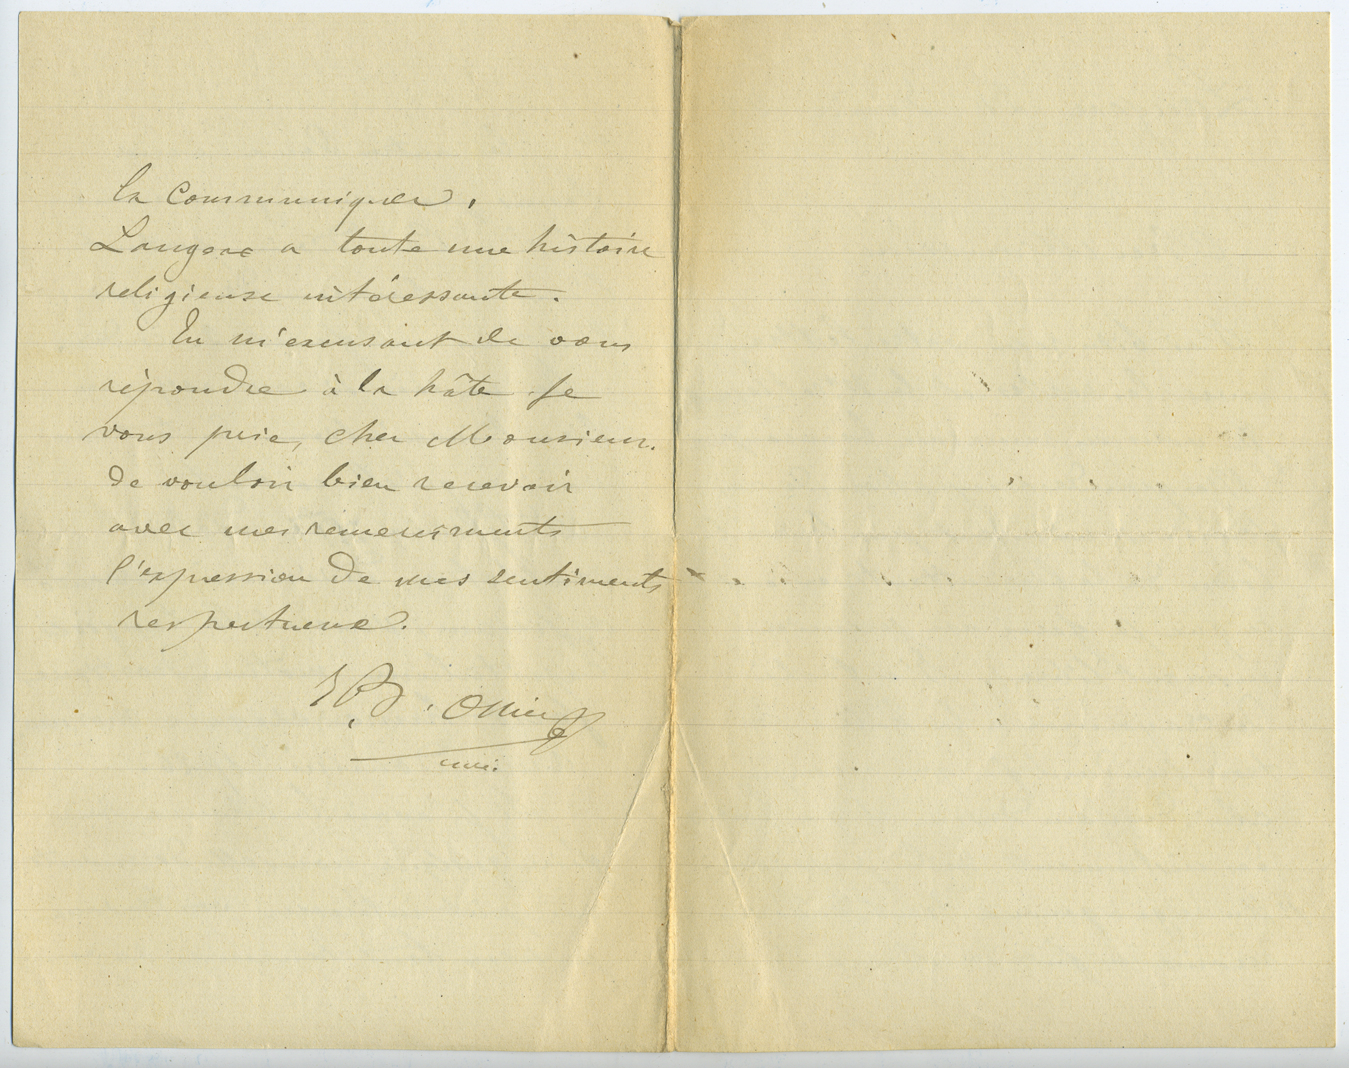 la communiquer.
Laugere a toute une histoire
religieuse intéressante.
En m'excusant de vous
répondre à la hâte je
vous prie, cher Monsieur.
de vouloir bien recevoir
avec mes remerciments
l'expression de mes sentiments
respectueux.
B. Ollier